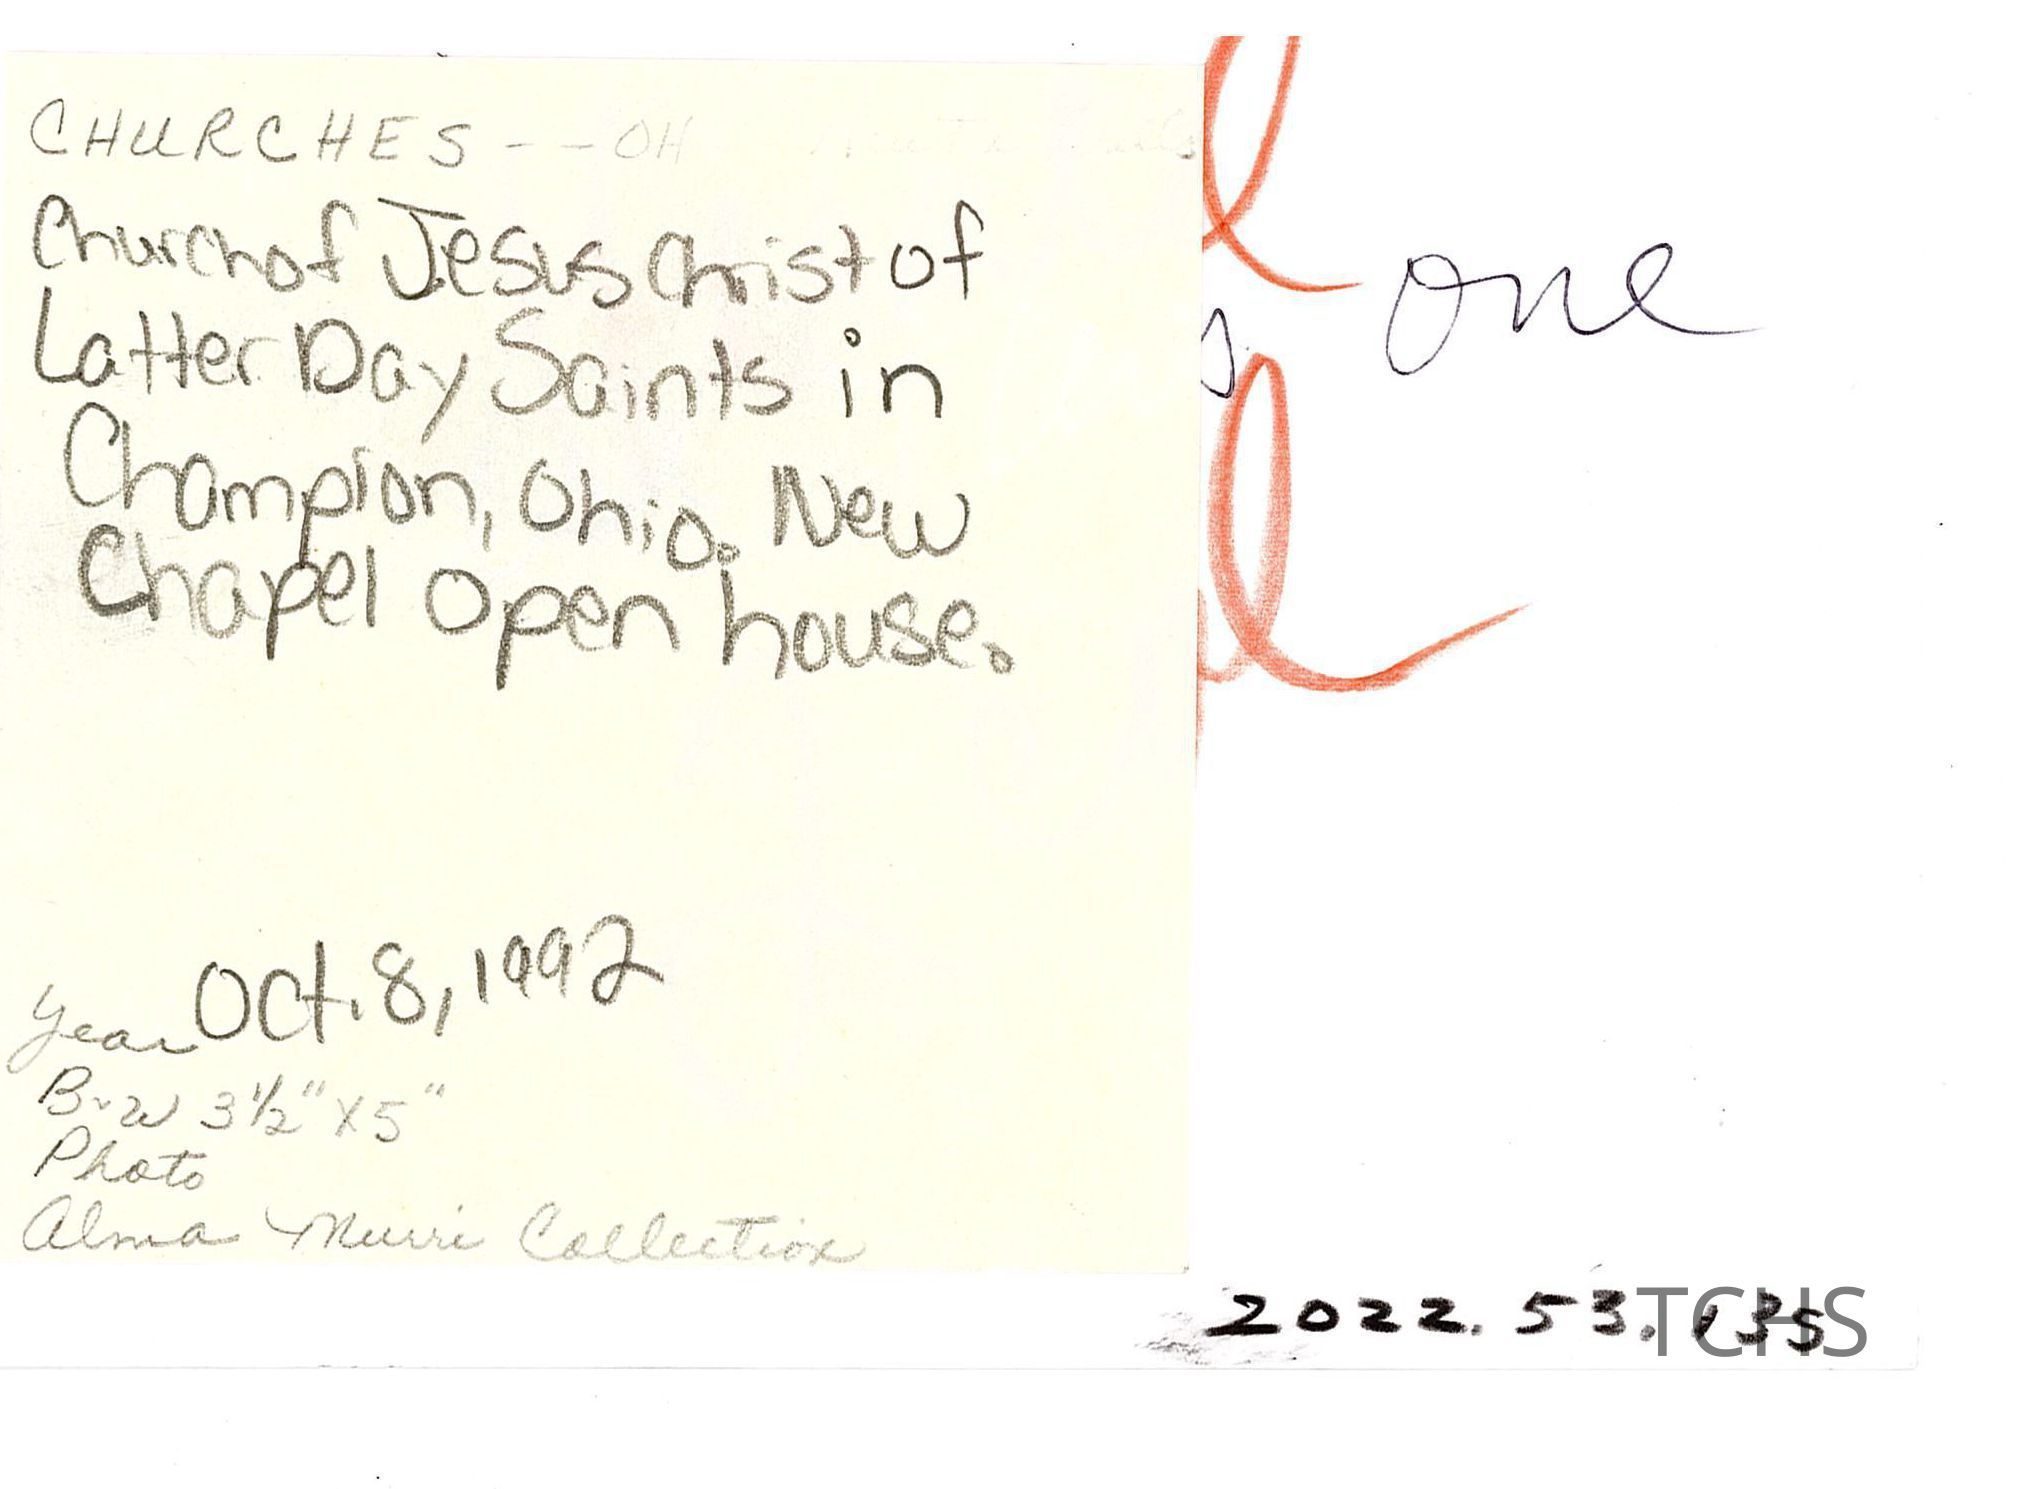 CHURCHES - - OH
Church of Jesus Christ of
Latter Day Saints in
Champion, Ohio. New
Chapel open house.
one
Year Oct. 8, 1992
B&W 3½" X 5"
Photo
Alma Murri Collection
2022.53.135
TCHS